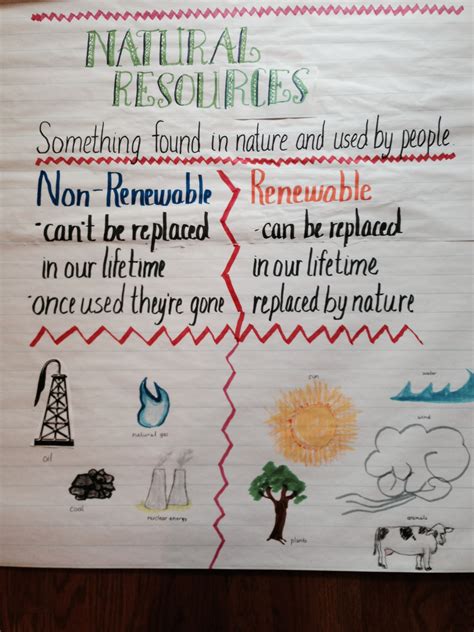 NATURAL
RESOURCES
Something found in nature and used by people
Non-Renewable
-can't be replaced
in our lifetime
-once used they're gone
Renewable
-can be replaced
in our lifetime
replaced by nature
oil
natural gas
coal
nuclear energy
sun
water
wind
plants
animals